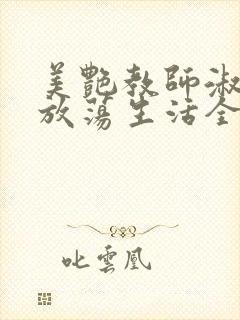 美艷教師淑
放蕩生活全
叱雲凰